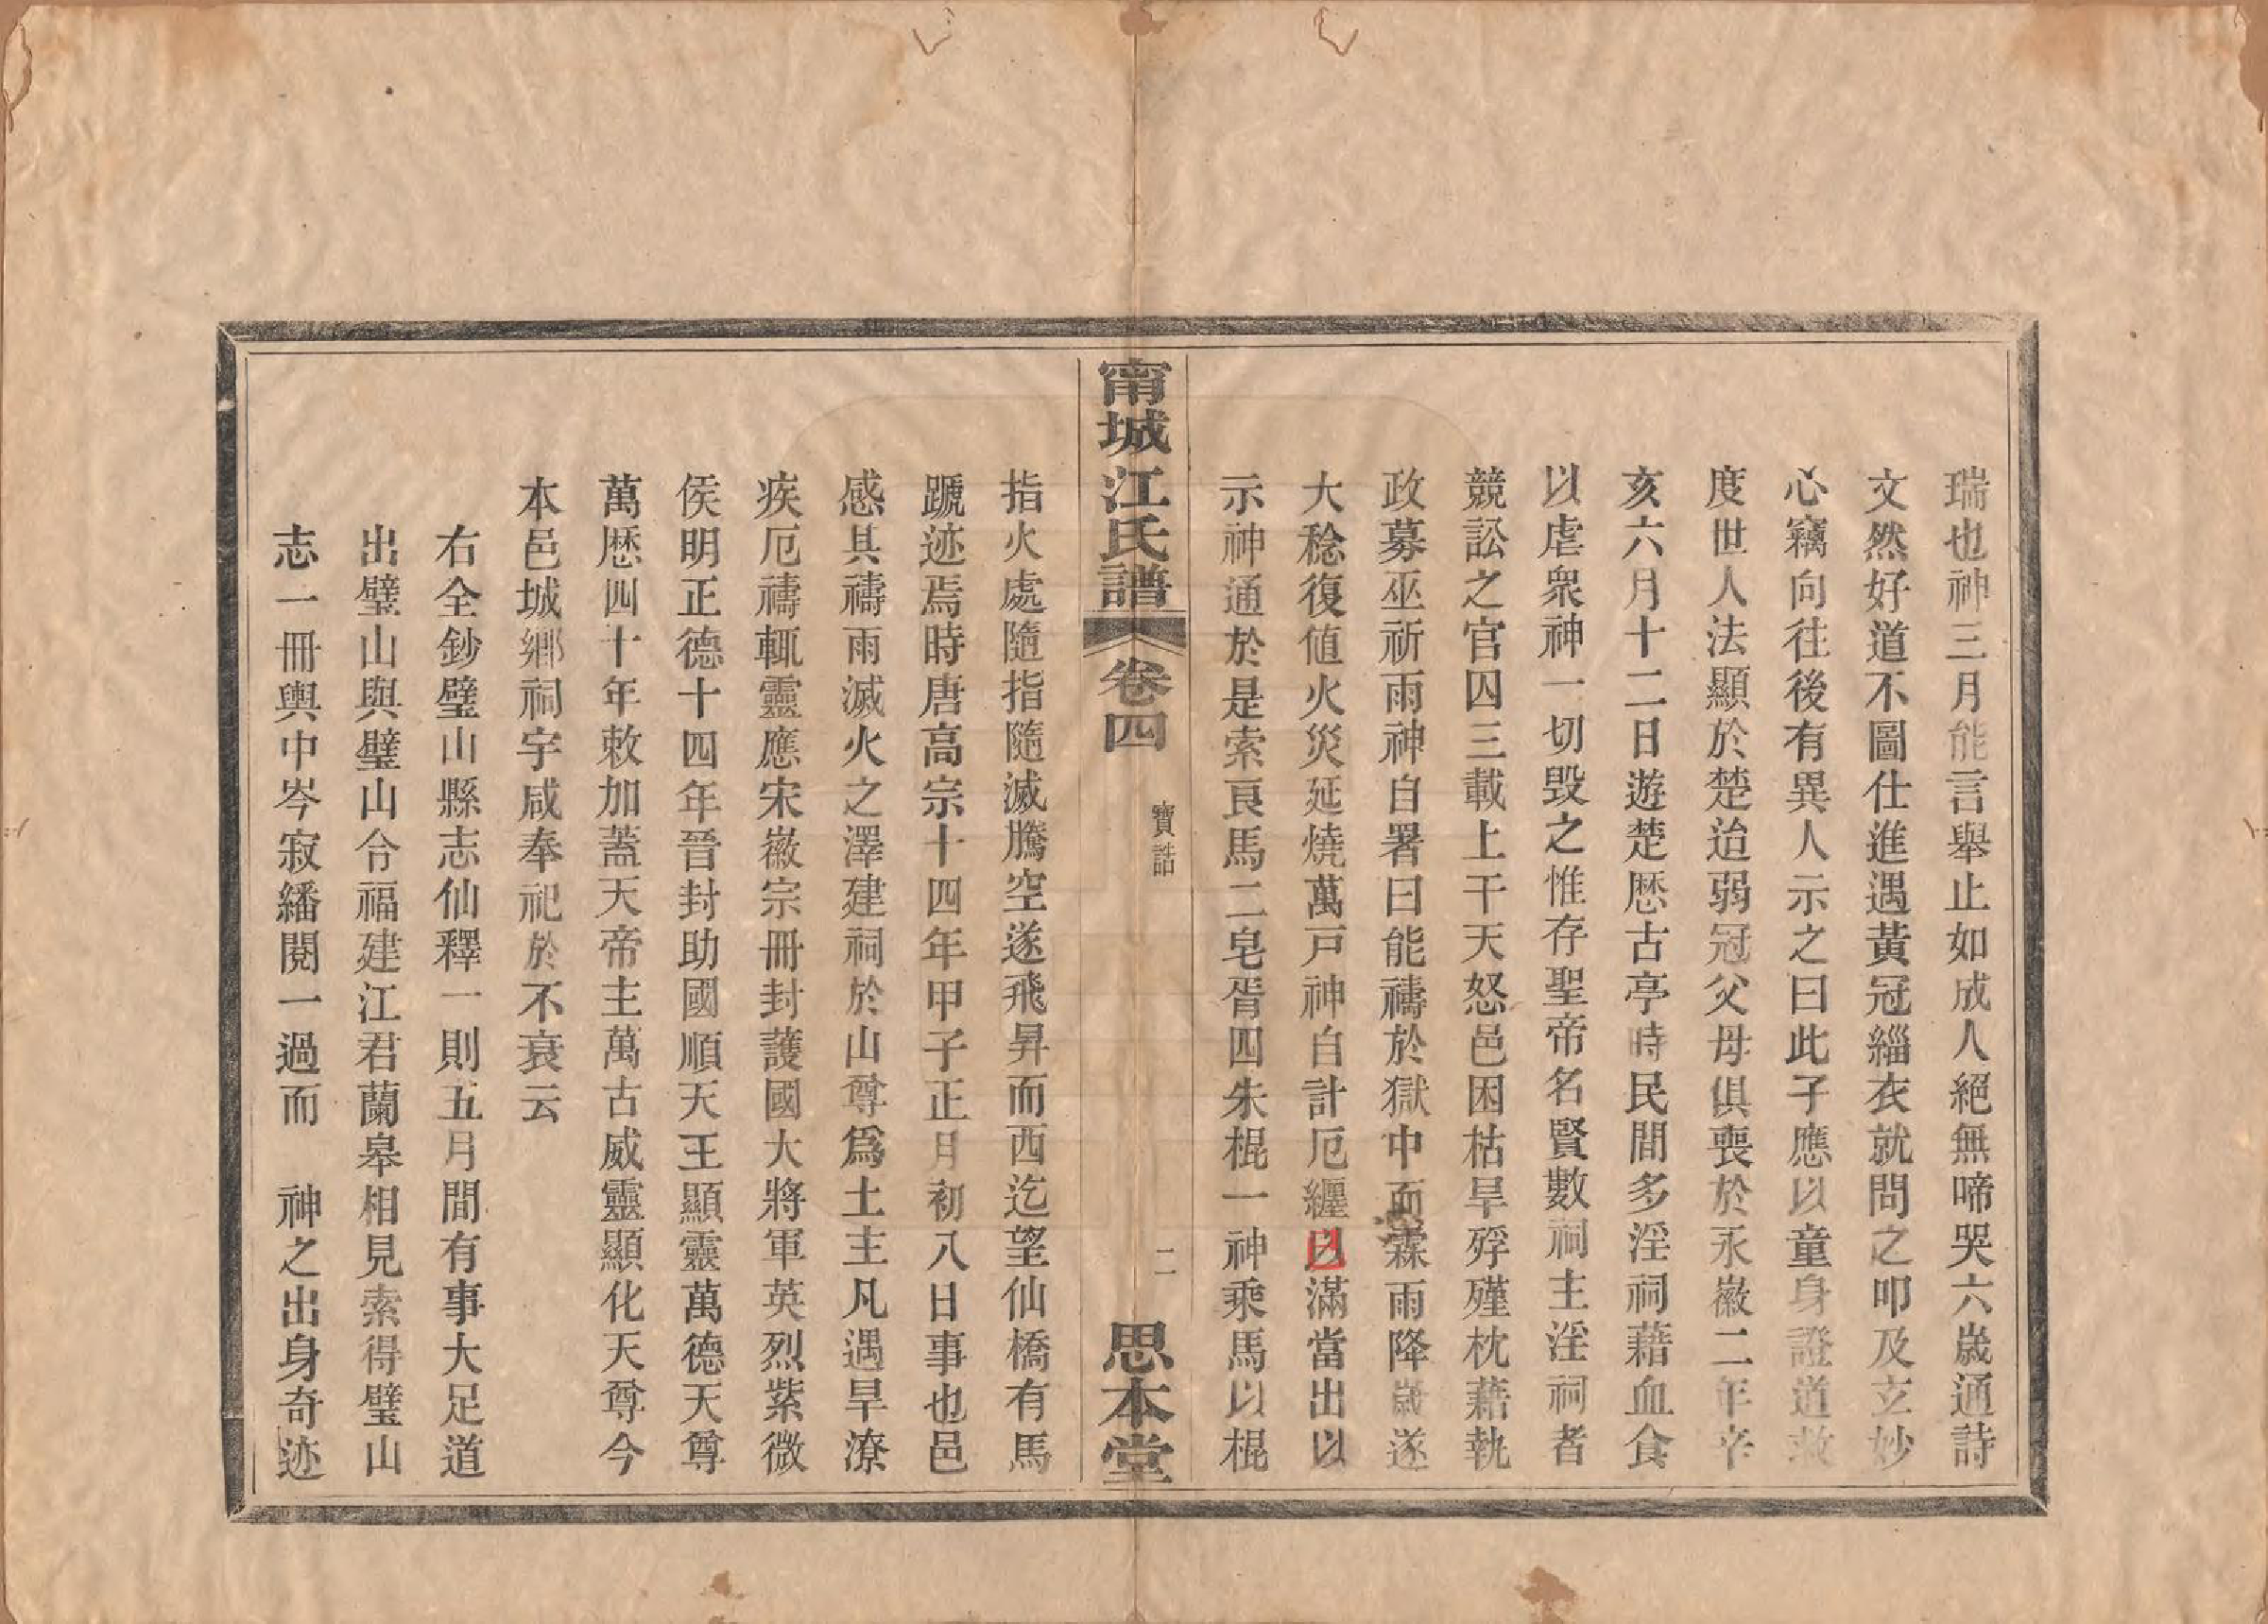 瑞也神三月能言舉止如成人絕無啼哭六歲通詩
文然好道不圖仕進遇黃冠緇衣就問之叩及玄妙
心竊向往後有異人示之曰此子應以童身證道救
度世人法顯於楚迨弱冠父母俱喪於永徽二年辛
亥六月十二日遊楚歷古亭時民間多淫祠藉血食
以虐衆神一切毀之惟存聖帝名賢數祠主淫祠者
競訟之官囚三載上干天怒邑困枯旱殍殣枕藉執
政募巫祈雨神自署曰能禱於獄中而霖雨降歲遂
大稔復值火災延燒萬戸神自計厄纏已滿當出以
示神通於是索良馬二皂胥四朱棍一神乘馬以棍
甯城江氏譜
卷四
寶誥
二
思本堂
指火處隨指隨滅騰空遂飛昇而西迄望仙橋有馬
蹏迹焉時唐高宗十四年甲子正月初八日事也邑
感其禱雨滅火之澤建祠於山尊爲土主凡遇旱潦
疾厄禱輒靈應宋徽宗冊封護國大將軍英烈紫微
侯明正德十四年晉封助國順天王顯靈萬德天尊
萬歷四十年敕加蓋天帝主萬古威靈顯化天尊今
本邑城鄉祠宇咸奉祀於不衰云
右全鈔璧山縣志仙釋一則五月間有事大足道
出璧山與璧山令福建江君蘭皋相見索得璧山
志一冊輿中岑寂繙閱一過而　神之出身奇迹